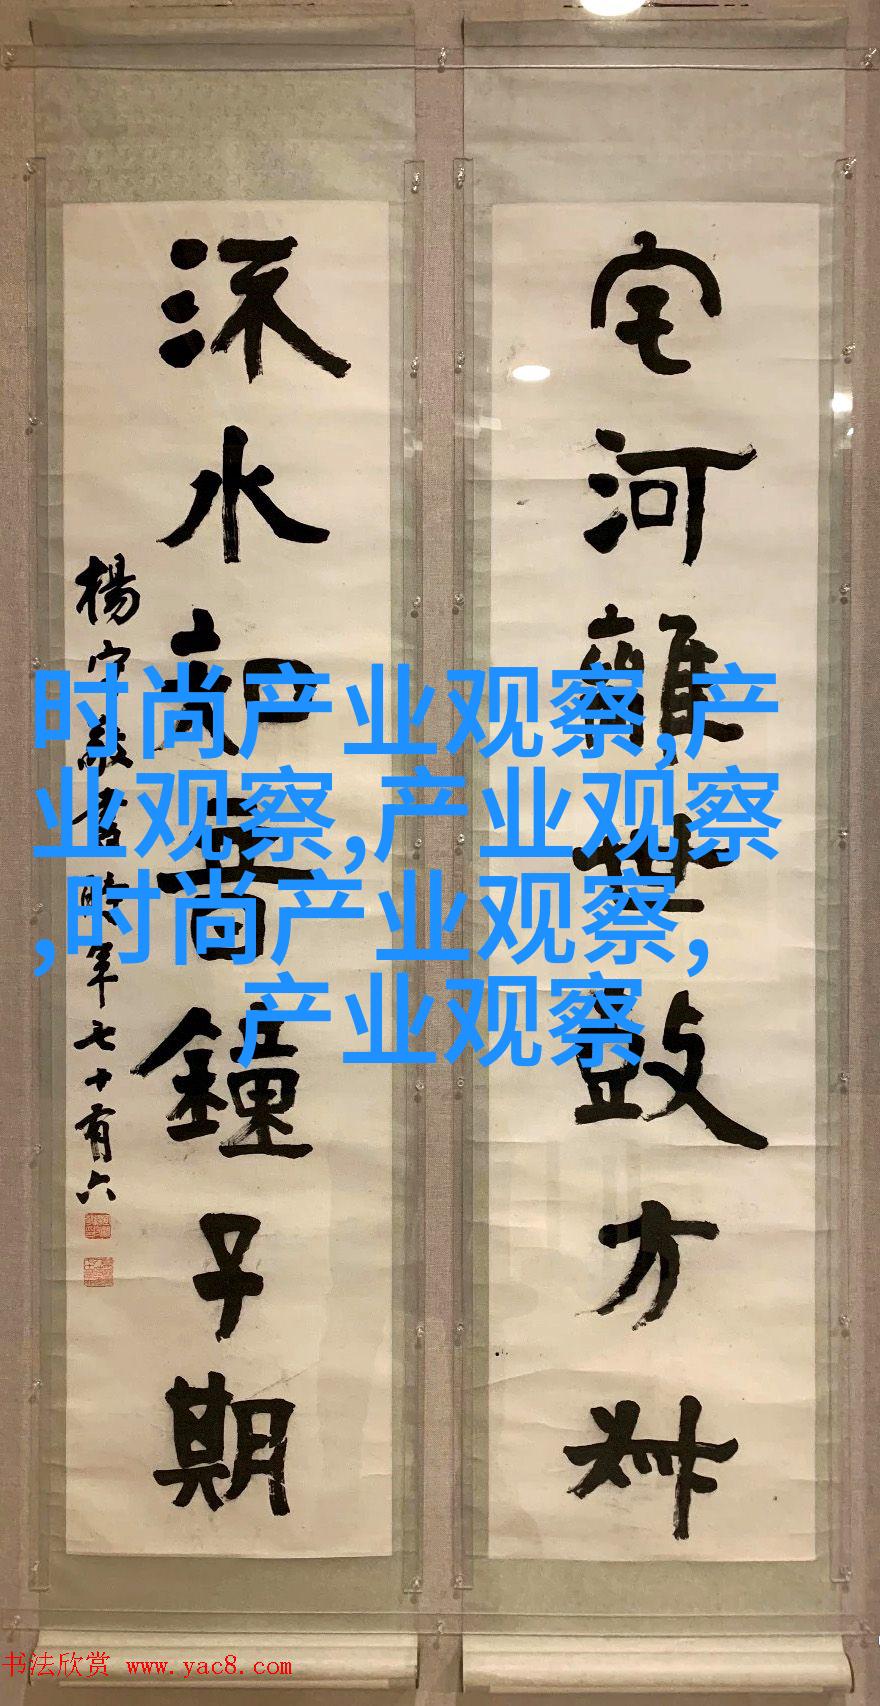 时尚产业观察,产
业观察,产业观察
,时尚产业观察,
产业观察
宅河世鼓方叔
㳅水知音鐘子期
楊守敬書時年七十有六
书法欣赏 www.yac8.com